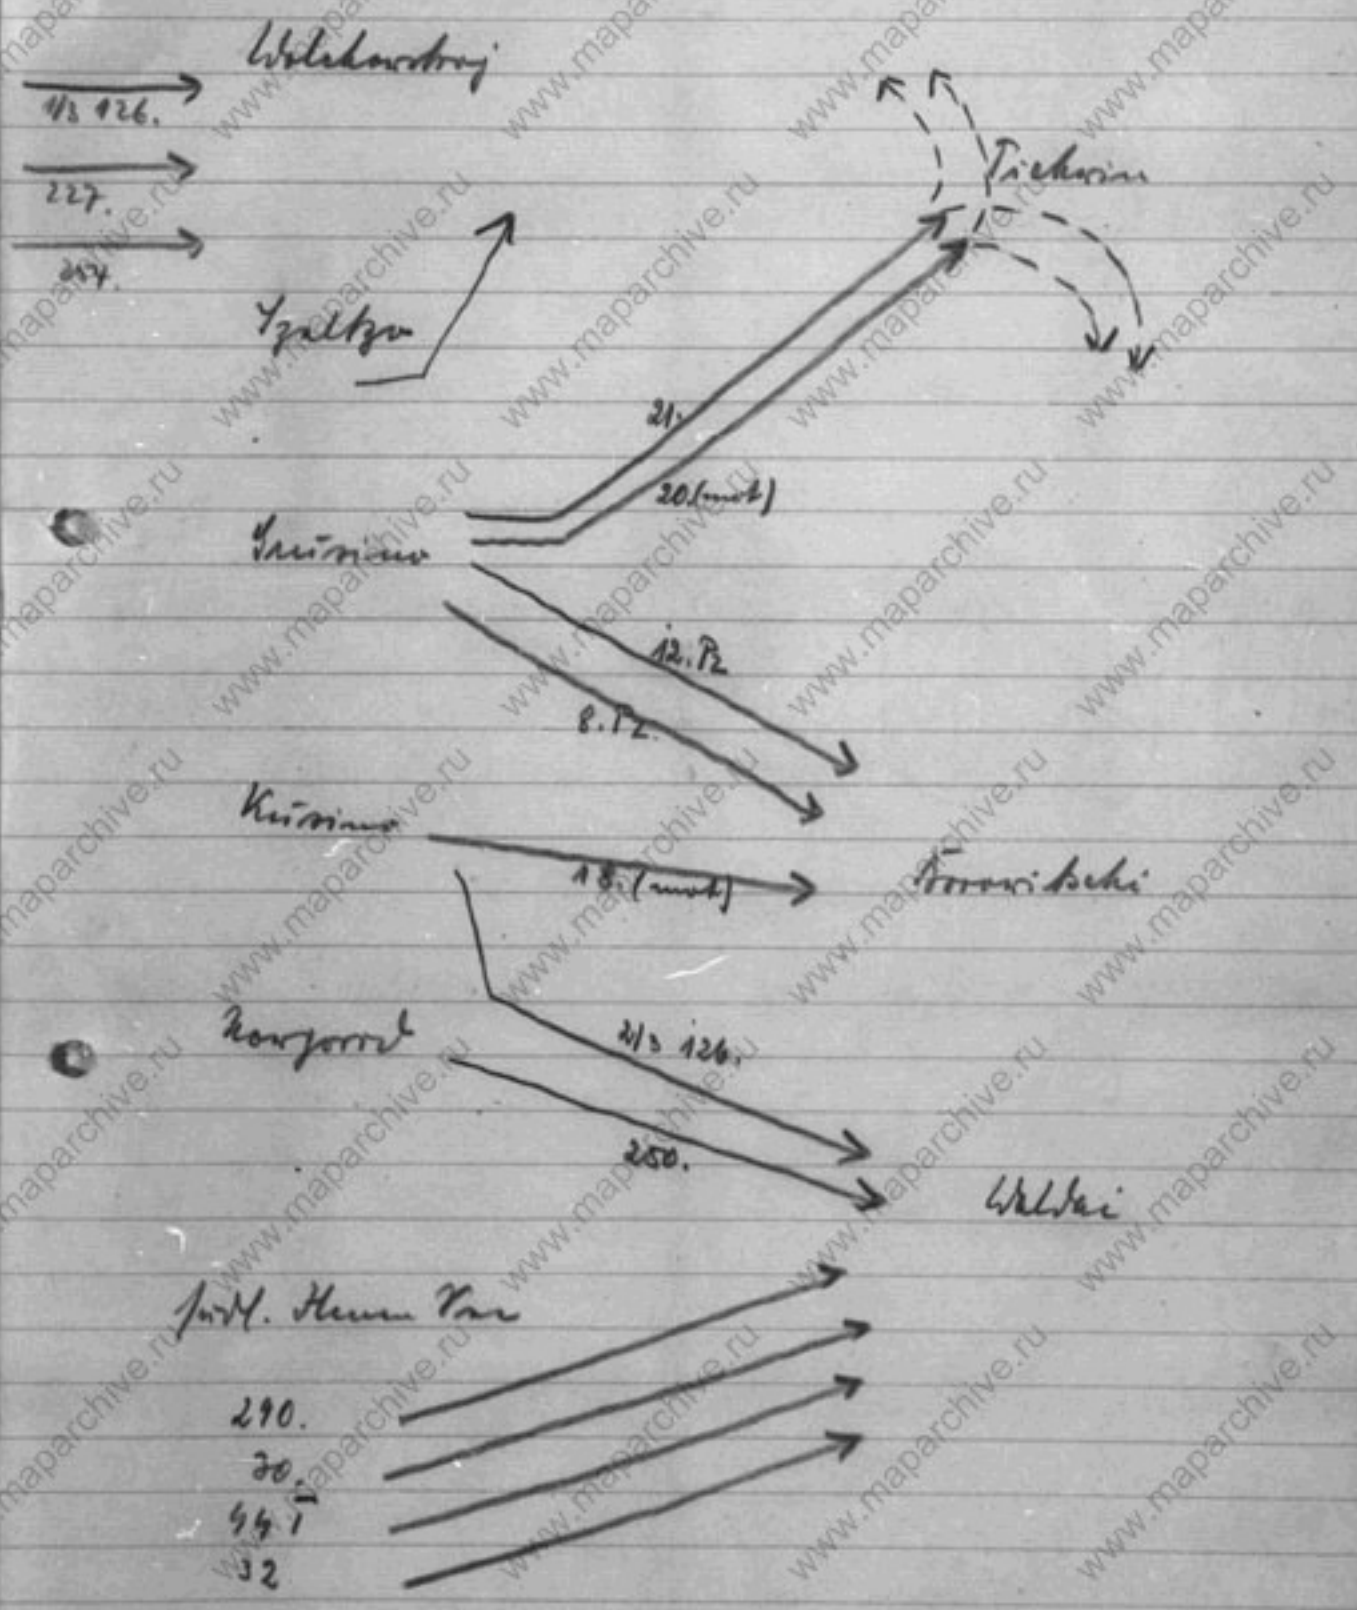 Wolchowstroj
1/3 126.
227.
254.
Tichwin
21.
20.(mot)
Grusino
12. Pz
8. Pz.
Kusino
18.(mot)
Borowitschi
Nowgorod
2/3 126.
250.
Waldai
südl. Ilmen See
290.
30.
SS T
32
www.maparchive.ru